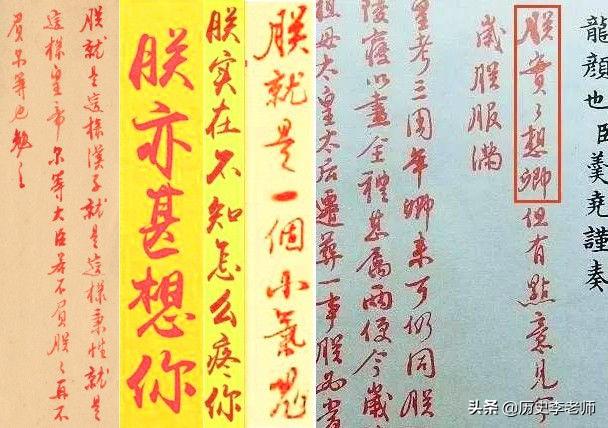 朕就是這樣漢子就是這樣秉性就是
這樣皇帝尔等大臣若不負朕〻再不
負尔等也勉之
朕亦甚想你
朕实在不知怎么疼你
朕就是一個小氣鬼
龍顔也臣羹堯謹奏
朕實〻想卿但有點意見今
歲朕服滿
皇考三周年卿来可仍同朕
陵寢以盡全禮甚屬兩便今歲
祖母太皇太后遷葬一事朕
头条 @历史李老师